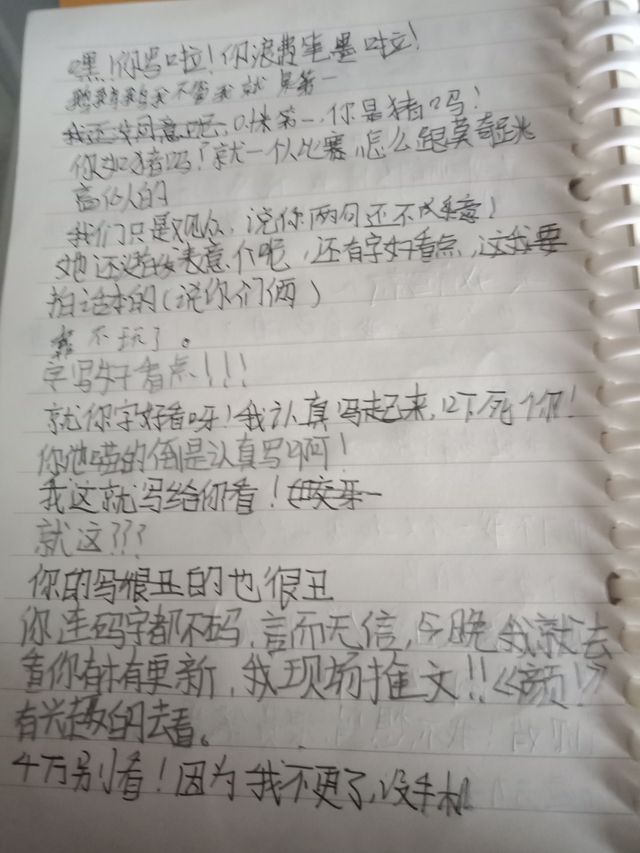 嘿!你写啦!你浪费笔墨啦!
鹅鹅鹅我不管我就是第一
我还没同意呢,只快第一,你是猪吗!
你如猪吗?就一个比赛,怎么跟莫奇跳
高似人的
我们只是观众,说你两句还不乐意!
她还没表意个呢,还有字好看点,这我要
拍话本的(说你们俩)
靠不玩了。
字写好看点!!!
就你字好看呀!我认真写起来,吓死个你!
你他喵的倒是认真写啊!
我这就写给你看!
就这???
你的写很丑的也很丑
你连码字都不码,言而无信,今晚我就去
看你有没有更新,我现场推文!!《颜!》
有兴趣的去看。
千万别看!因为我不更了,没手机